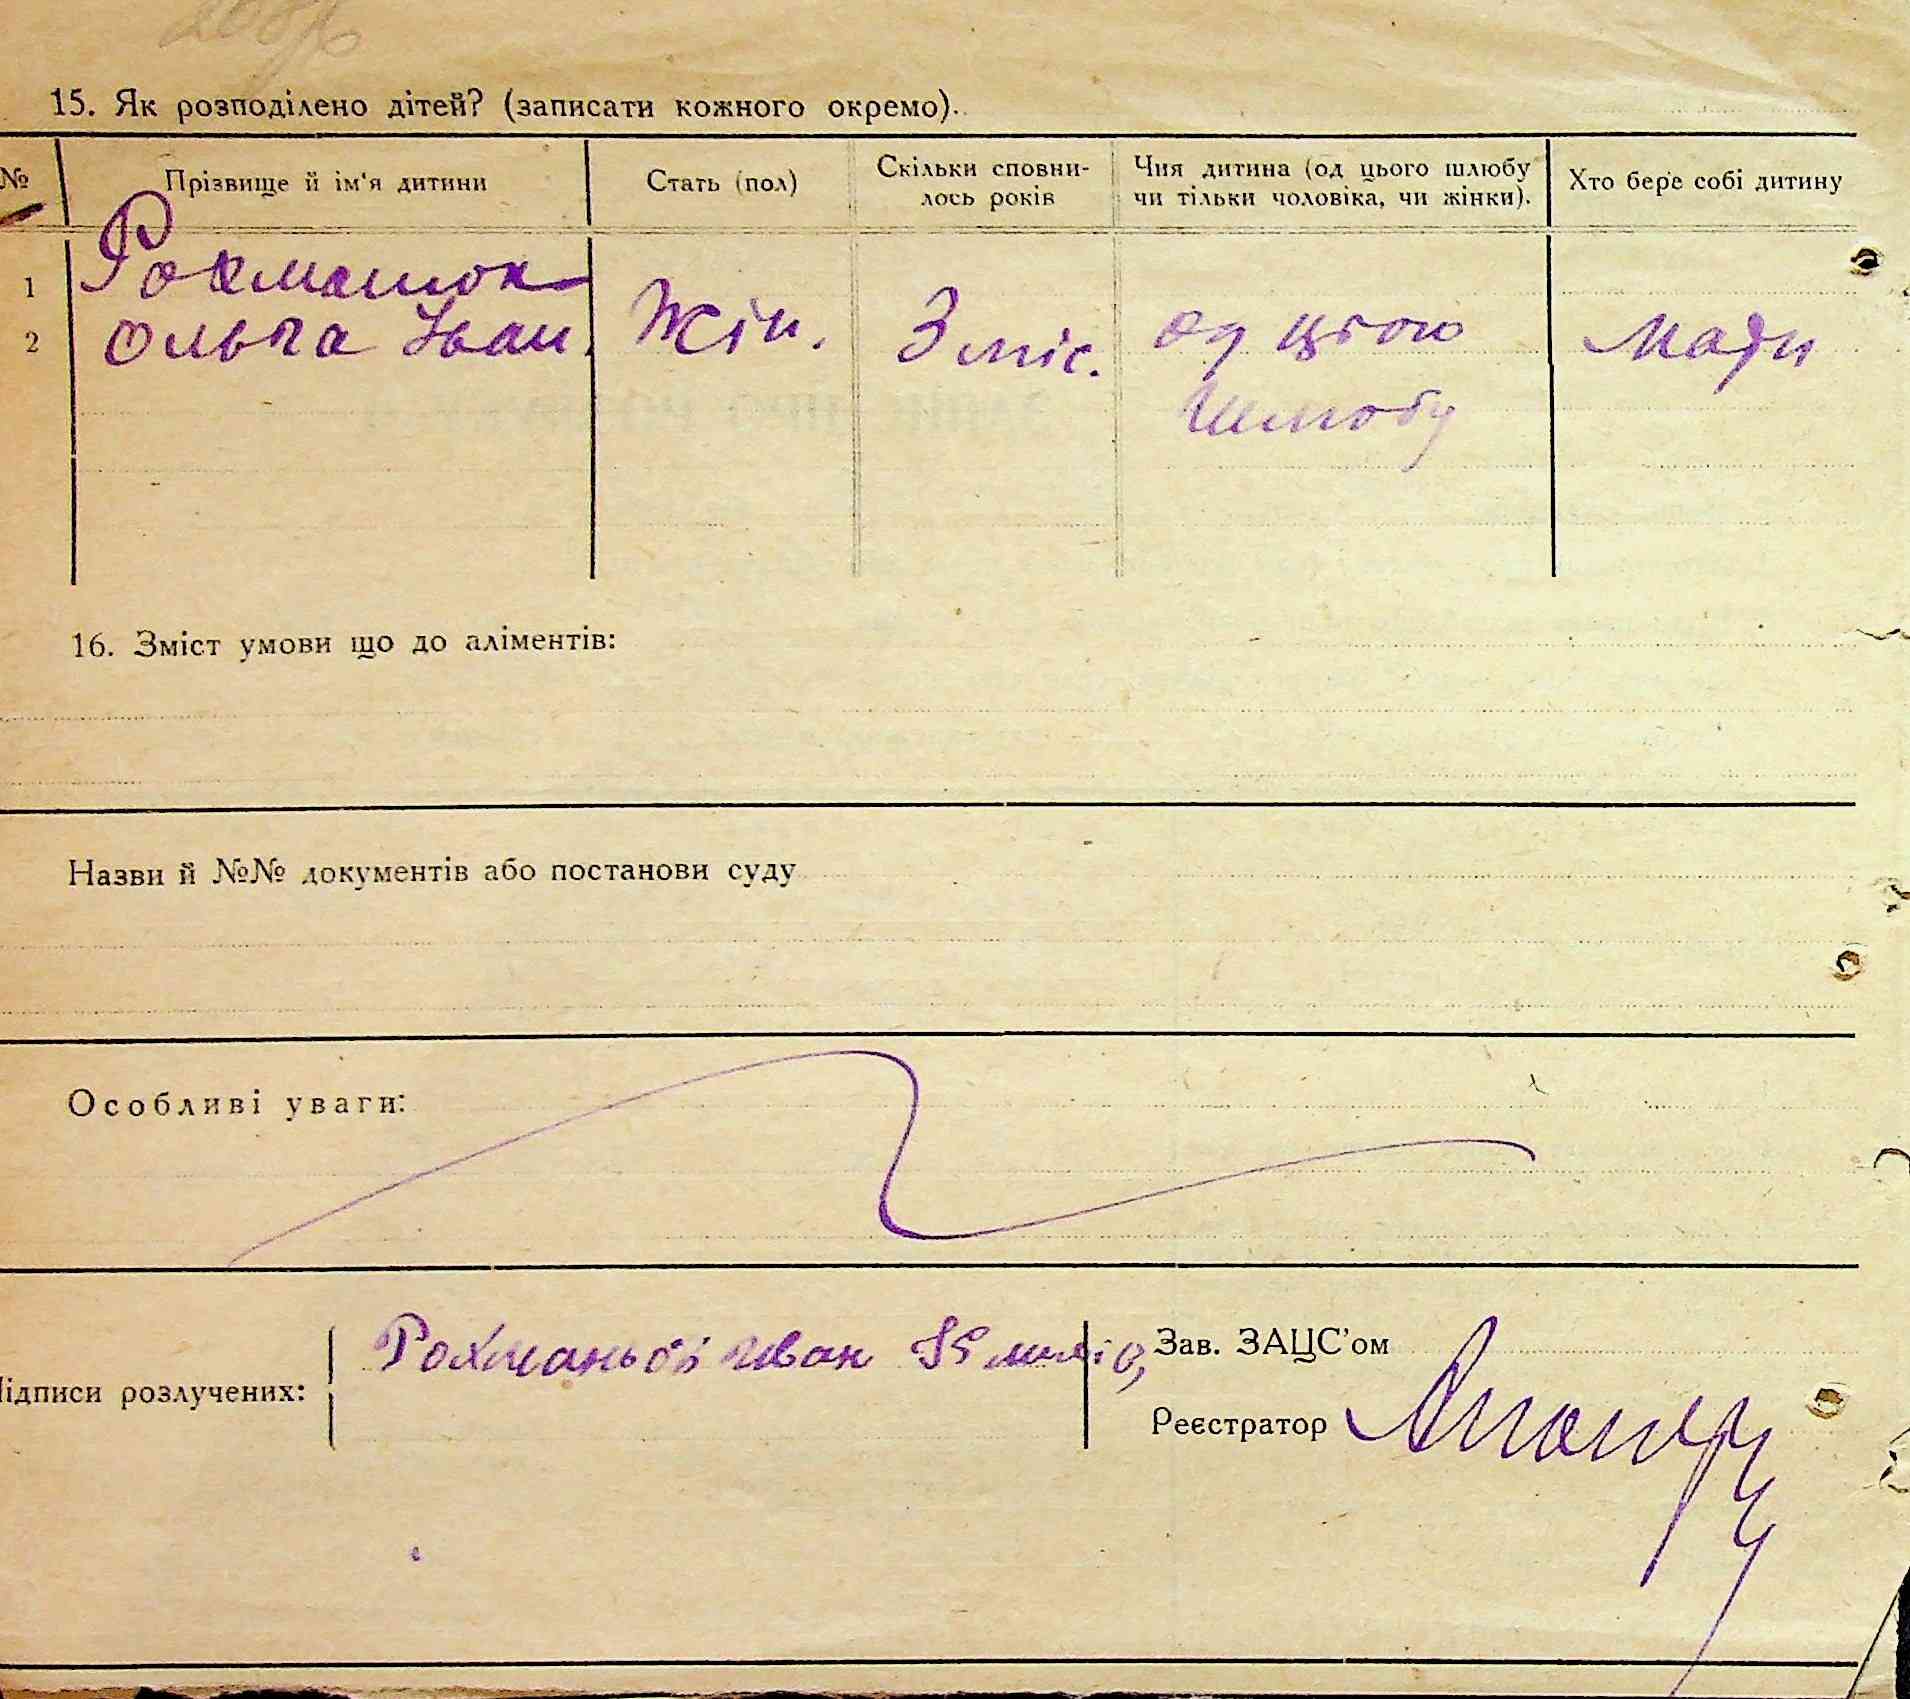 15. Як розподілено дітей? (записати кожного окремо).
№ Прізвище й ім'я дитини Стать (пол) Скільки сповни- лось років Чия дитина (од цього шлюбу чи тільки чоловіка, чи жінки). Хто бере собі дитину
1
2 Ольга Іван. Жін. 3 міс. од цього Мати
шлюбу
16. Зміст умови що до аліментів:
Назви й №№ документів або постанови суду
Особливі уваги:
Підписи розлучених: Іван
Зав. ЗАЦС’ом
Реєстратор